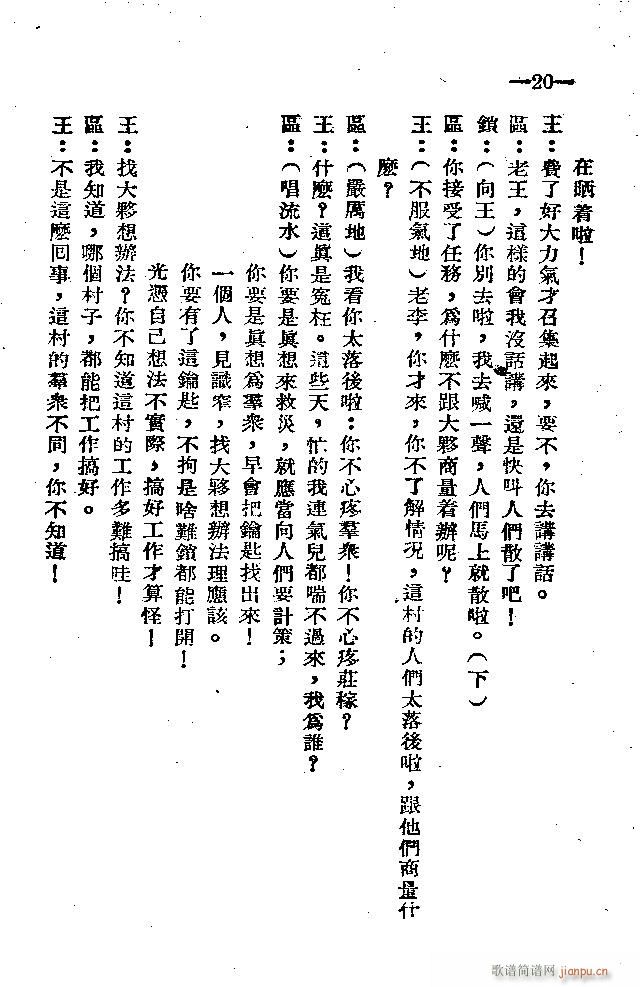 —20—
在晒着啦！
王：費了好大力氣才召集起來，要不，你去講講話。
區：老王，這樣的會我沒話講，還是快叫人們散了吧！
鎖：（向王）你別去啦，我去喊一聲，人們馬上就散啦。（下）
區：你接受了任務，爲什麽不跟大夥商量着辦呢？
王：（不服氣地）老李，你才來，你不了解情况，這村的人們太落後啦，跟他們商量什
麽？
區：（嚴厲地）我看你太落後啦：你不心疼羣衆！你不心疼莊稼？
王：什麽？這眞是冤枉。這些天，忙的我連氣兒都喘不過來，我爲誰？
區：（唱流水）你要是眞想來救災，就應當向人們要計策；
你要是眞想爲羣衆，早會把鑰匙找出來！
一個人，見識窄，找大夥想辦法理應該。
你要有了這鑰匙，不拘是啥難鎖都能打開！
光憑自己想法不實際，搞好工作才算怪！
王：找大夥想辦法？你不知道這村的工作多難搞哇！
區：我知道，哪個村子，都能把工作搞好。
王：不是這麽回事，這村的羣衆不同，你不知道！
歌谱简谱网
jianpu.cn